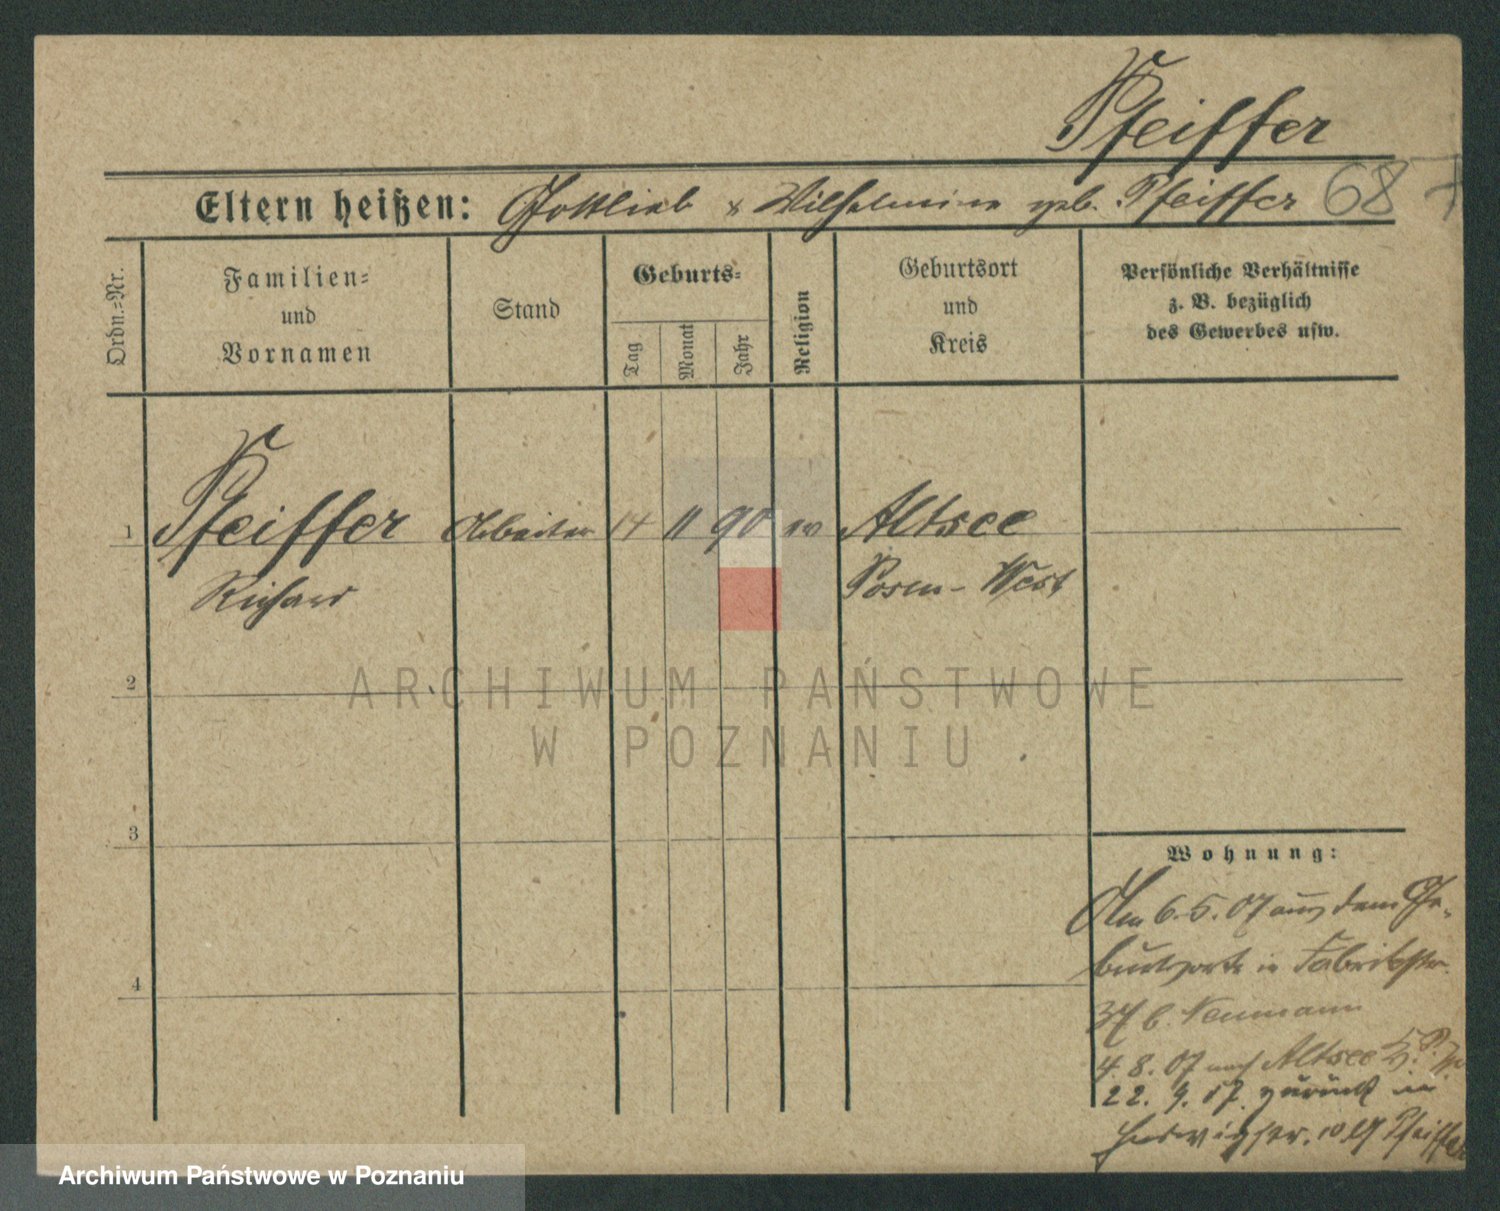 Pfeiffer
Eltern heißen: Gottlieb & Wilhelmine geb. Pfeiffer 68
Ordn.-Nr.
Familien-
und
Vornamen
Stand
Geburts-
Tag
Monat
Jahr
Religion
Geburtsort
und
Kreis
Persönliche Verhältnisse
z. B. bezüglich
des Gewerbes usw.
1 Pfeiffer Arbeiter 14 11 90 ev Altsee
Richard Posen-West
2
ARCHIWUM PAŃSTWOWE
W POZNANIU
3
Wohnung:
Am 6.5.07 aus dem Ge-
burtsorte in Fabrikstr.
37 b. Neumann
4
4.8.07 nach Altsee
22. 9. 07 zurück in
Hedwigstr. Pfeiffer
Archiwum Państwowe w Poznaniu